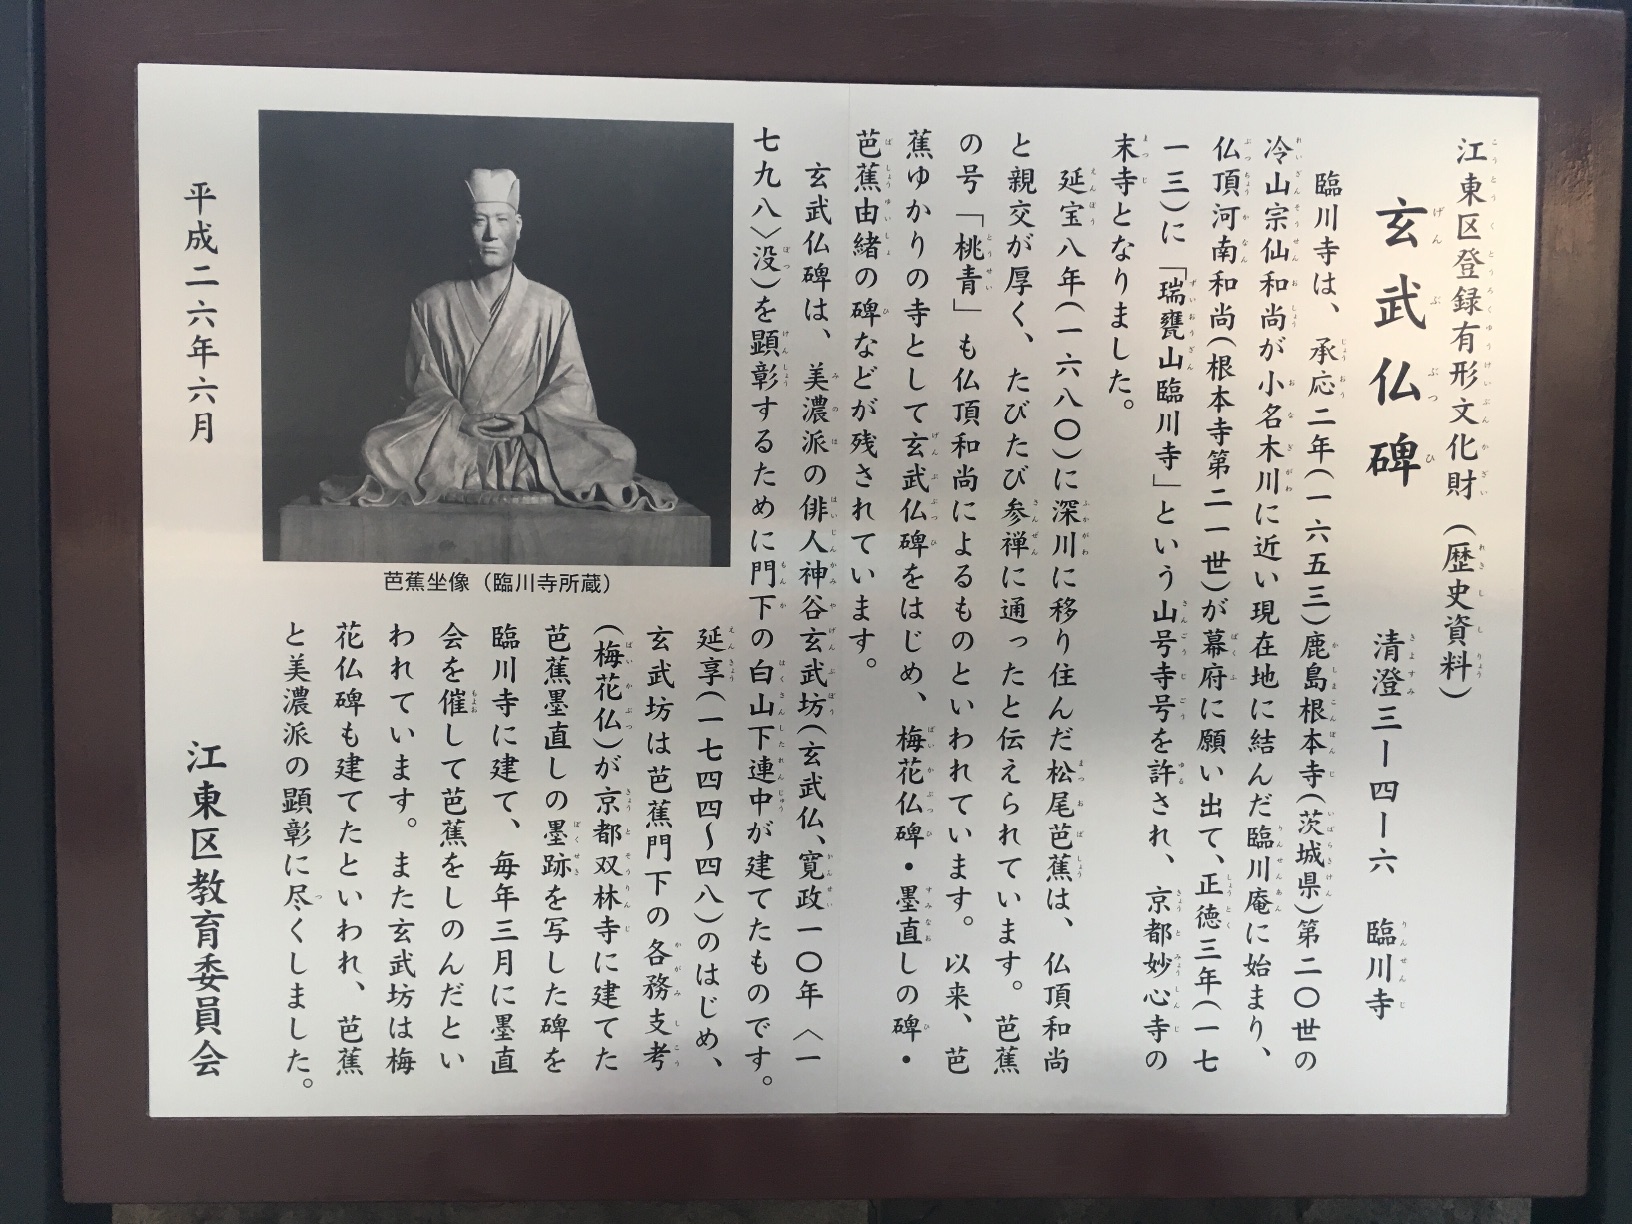 江東区登録有形文化財（歴史資料）
玄武仏碑
清澄三ー四ー六　臨川寺
臨川寺は、承応二年（一六五三）鹿島根本寺（茨城県）第二〇世の
冷山宗仙和尚が小名木川に近い現在地に結んだ臨川庵に始まり、
仏頂河南和尚（根本寺第二一世）が幕府に願い出て、正徳三年（一七
一三）に「瑞甕山臨川寺」という山号寺号を許され、京都妙心寺の
末寺となりました。
延宝八年（一六八〇）に深川に移り住んだ松尾芭蕉は、仏頂和尚
と親交が厚く、たびたび参禅に通ったと伝えられています。芭蕉
の号「桃青」も仏頂和尚によるものといわれています。以来、芭
蕉ゆかりの寺として玄武仏碑をはじめ、梅花仏碑・墨直しの碑・
芭蕉由緒の碑などが残されています。
玄武仏碑は、美濃派の俳人神谷玄武坊（玄武仏、寛政一〇年〈一
七九八〉没）を顕彰するために門下の白山下連中が建てたものです。
延享（一七四四～四八）のはじめ、
玄武坊は芭蕉門下の各務支考
（梅花仏）が京都双林寺に建てた
芭蕉墨直しの墨跡を写した碑を
臨川寺に建て、毎年三月に墨直
会を催して芭蕉をしのんだとい
われています。また玄武坊は梅
花仏碑も建てたといわれ、芭蕉
と美濃派の顕彰に尽くしました。
芭蕉坐像（臨川寺所蔵）
平成二六年六月
江東区教育委員会